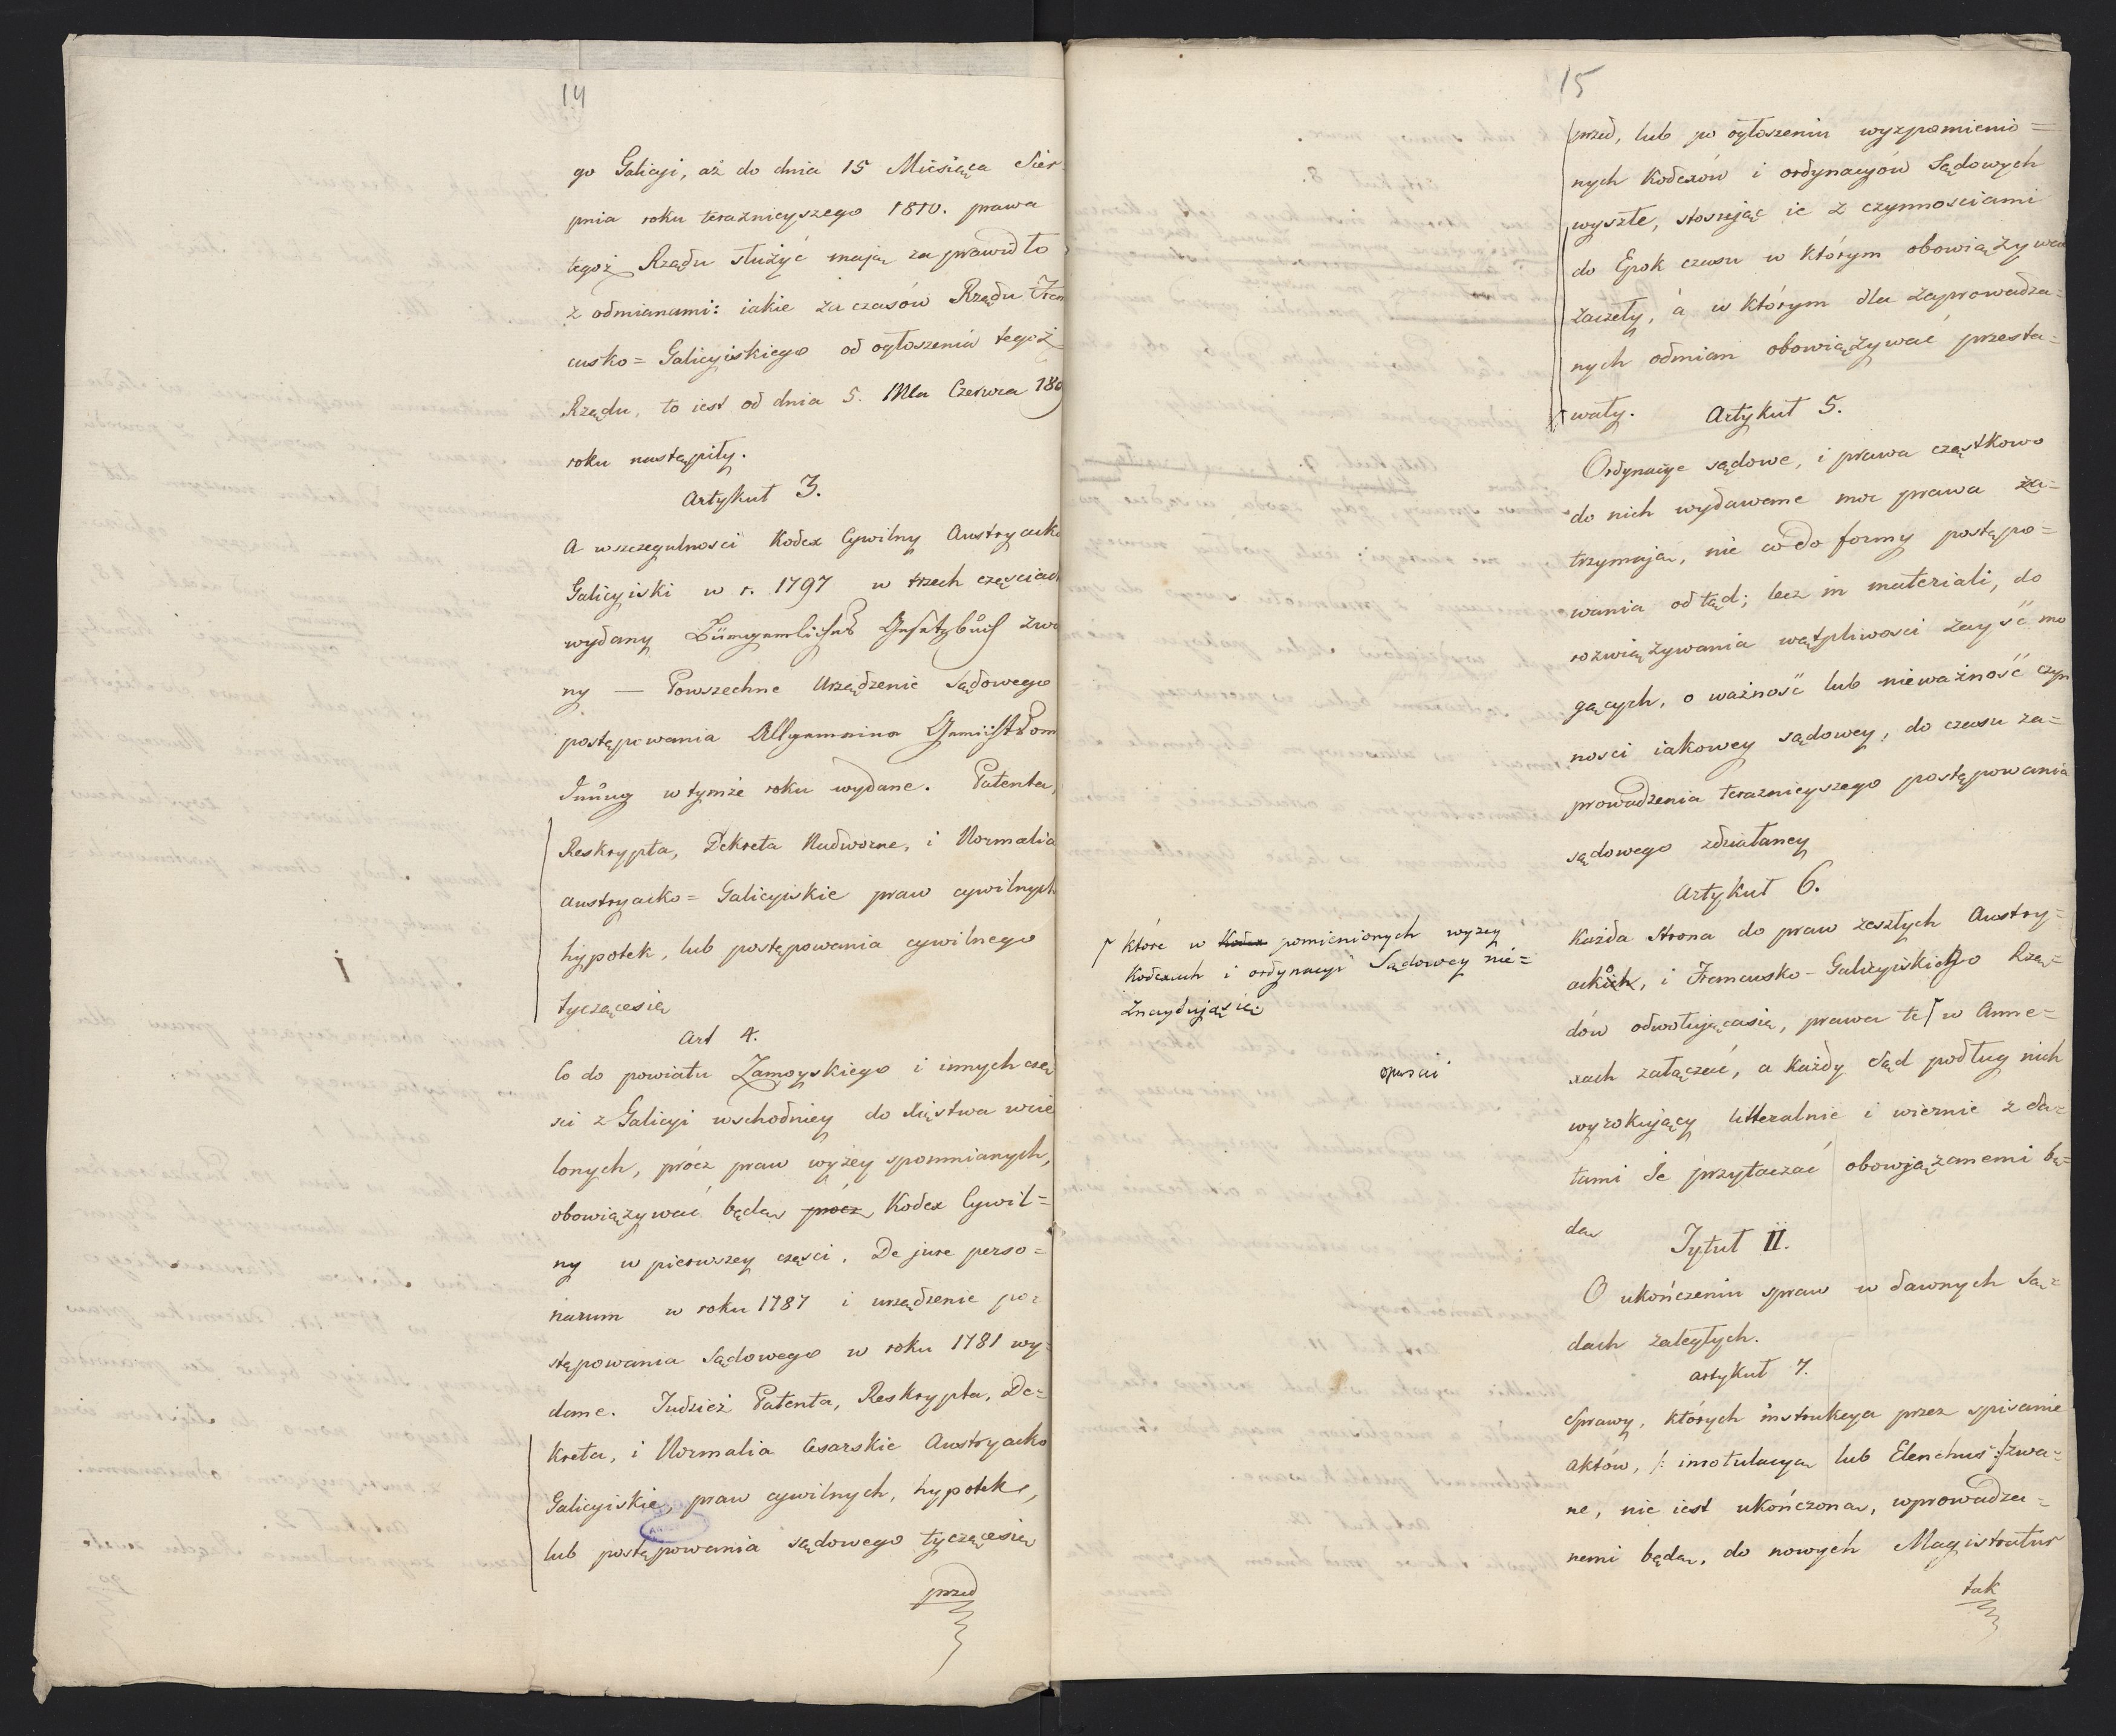 14
go Galicyi, aż do dnia 15 Miesiąca Sier
pnia roku teraznieyszego 1810. prawa
tegoż Rządu służyć mają za prawidło
z odmianami: iakie za czasów Rządu Fran
cusko= Galicyiskiego od ogłoszenia tegoż
Rządu, to iest od dnia 5. Mca Czerwca 180
roku nastąpiły.
Artykuł 3.
A wszczegulnosci Kodex Cywilny Austryacko
Galicyiski w r. 1797 w trzech częsciach
wydany Bürgerliches Gesetzbuch zwa
ny — Powszechne Urządzenie Sądowego
postępowania Allgemeine Gerichtsord
nung w tymże roku wydane. Patenta,
Reskrypta, Dekreta Nadworne, i Normalia
austryacko= Galicyiskie praw cywilnych
hypotek, lub postępowania cywilnego
tyczącesię
Art 4.
Co do powiatu Zamoyskiego i innych czę
sci z Galicyi wschodniey do Xięstwa wcie
lonych, prócz praw wyżey spomnianych,
obowiązywać będą prócz Kodex Cywil=
ny w pierwszey częsci. De jure perso=
narum w roku 1787 i urządzenie po=
stępowania Sądowego w roku 1781 wy=
dane. Tudzież Patenta, Reskrypta, De=
kreta, i Normalia Cesarskie Austryacko
Galicyiskie, praw cywilnych, hypotek,
lub postępowania sądowego tyczącesię
przed
15
przed, lub po ogłoszeniu wyzpomienio=
nych Kodexów i ordynacyów Sądowych
wyszłe, stosując ie z czynnosciami
do Epok czasu w którym obowiązywać
zaczęły, á w którym dla zaprowadza=
nych odmian obowiązywać przesta=
wały.
Artykuł 5.
Ordynacye sądowe, i prawa cząstkowo
do nich wydawane moc prawa za=
trzymają, nie codo formy postępo=
wania odtąd; lecz in materiali, do
rozwiązywania wątpliwosci zayść mo
gących, o ważność lub nieważność czyn
ności iakowey sądowey, do czasu za=
prowadzenia teraznieyszego postępowania
sądowego zdziałaney
Artykuł 6.
Każda Strona do praw zeszłych Austry=
ackich, i Francusko-Galicyiskiego Rzą=
dów odwołującasię, prawa te w Anne=
xach załączać, a każdy Sąd podług nich
wyrokujący litteralnie i wiernie z da=
tami Je przytaczać obowiązanemi bę=
dą
które w Kodex pomienionych wyzey
Kodexach i ordynacyi Sądowey nie=
znaydująsię
opusci
Tytuł II.
O ukończeniu spraw w dawnych Są=
dach zaległych.
artykuł 7.
Sprawy, których instrukcya przez spisanie
Aktów, /: inrotulacyą lub Elenchus :/ zwa=
ne, nie iest ukończoną, wprowadza=
nemi będą, do nowych Magistratur
tak